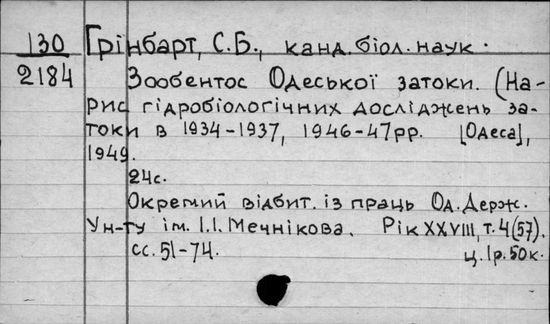 130 Грінбарт, С.Б., канд. біол. наук.
2184 Зообентос Одеської затоки. (На-
рис гідробіологічних досліджень за-
токи в 1934-1937, 1946-47рр. [Одеса],
1949.
24с.
Окремий відбит. із праць Од. Держ.
Ун-ту ім. І.І. Мечнікова. Рік XXVIII, т. 4(57).
сс. 51-74. ц. 1р. 50к.